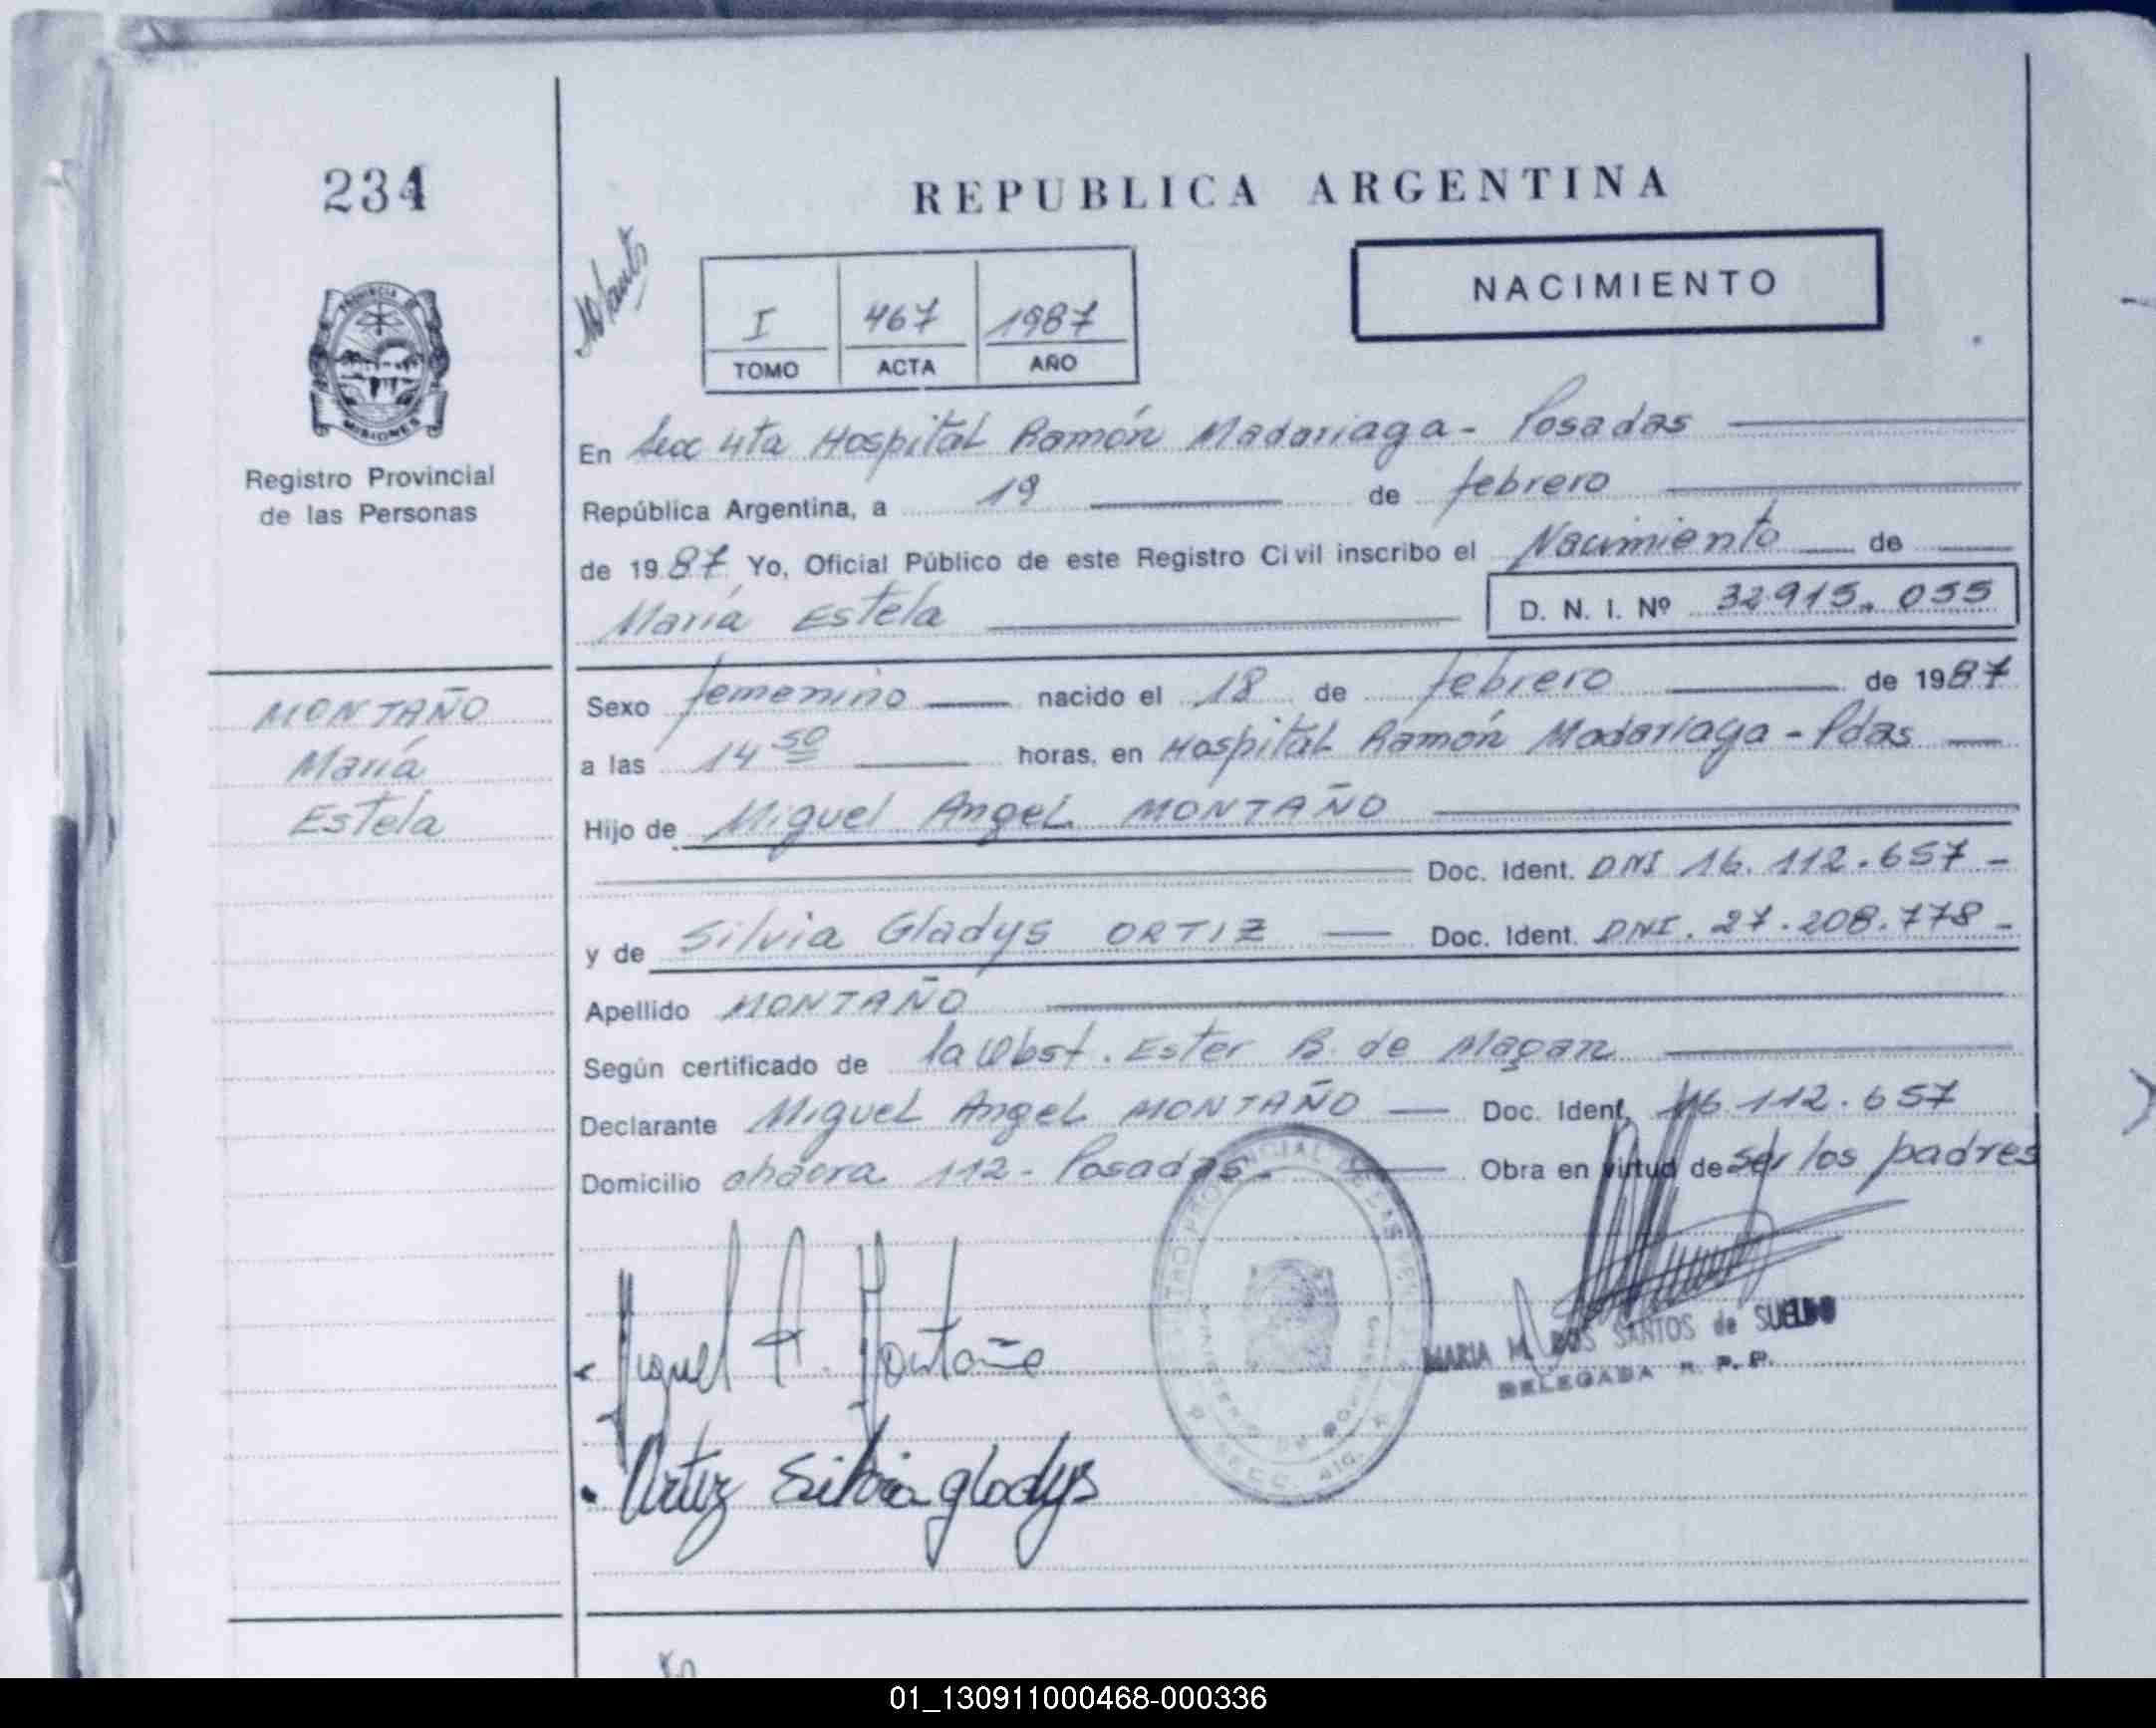 234
REPUBLICA ARGENTINA
NACIMIENTO
I 467 1987
TOMO ACTA AÑO
PROVINCIA DE
MISIONES
Registro Provincial
de las Personas
En Secc 4ta Hospital Ramón Madariaga - Posadas
República Argentina, a 19 de febrero
de 1987 Yo, Oficial Público de este Registro Civil inscribo el Nacimiento de
María Estela D. N. I. Nº 32.915.055
MONTAÑO
María
Estela
Sexo femenino nacido el 18 de febrero de 1987
a las 14 50 horas, en Hospital Ramón Madariaga - Pdas
Hijo de Miguel Angel MONTAÑO
Doc. Ident. DNI 16.112.657 -
y de Silvia Gladys ORTIZ Doc. Ident. DNI. 27.208.778 -
Apellido MONTAÑO
Según certificado de la Obst. Ester B. de
Declarante Miguel Angel MONTAÑO Doc. Ident. 16.112.657
Domicilio chacra 112 - Posadas - Obra en virtud de ser los padres
Miguel A. Montaño
MARIA M. DOS SANTOS de SUELDO
DELEGADA R. P. P.
Ortiz Silvia gladys
01_130911000468-000336